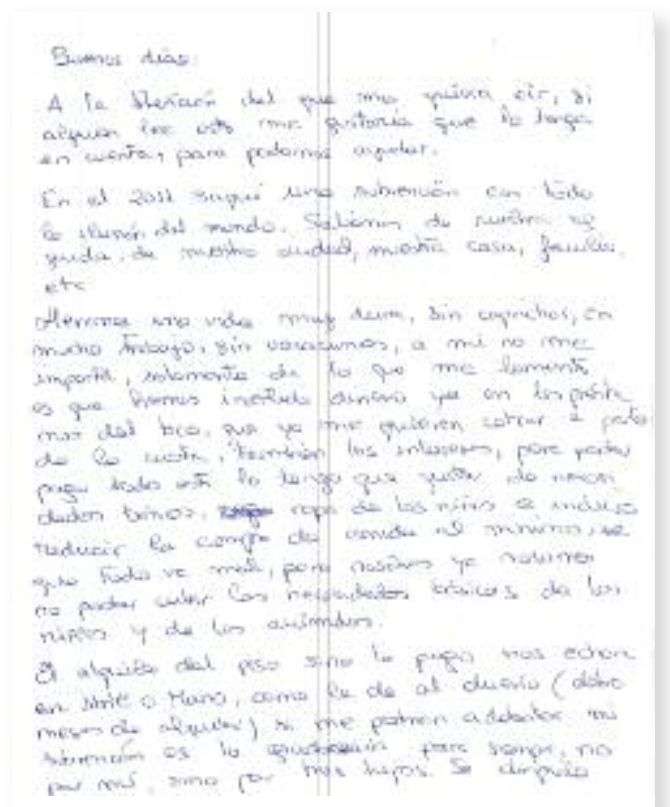 Buenos días:
A la atención del que me quiera oír, si
alguien lee esto me gustaria que lo tenga
en cuenta, para podernos ayudar.
En el 2011 seguí una subvención con toda
la ilusión del mundo. de nuestra
de nuestra ciudad, nuestra casa, familia,
etc
una vida muy dura, sin caprichos, con
mucho trabajo, sin vacaciones, a mi no me
importa, solamente de lo que me lamento
es que hemos invertido dinero ya en los présta
mos del bco, que ya me quieren cobrar a parte
de la cuota, también los intereses, para poder
pagar todo esto lo tengo que quitar de necesi
dades ropa de los niños e incluso
reducir la compra de comida al mínimo, se
que todo va mal, pero nosotros ya
no poder cubrir las necesidades básicas de los
niños y de los animales.
El alquiler del piso sino lo pago nos echan
en Abril o Marzo, como le de al dueño (debo
meses de alquiler) si me podrian adelantar mi
subvención os lo para siempre, no
por mí, sino por mis hijos. Se despide